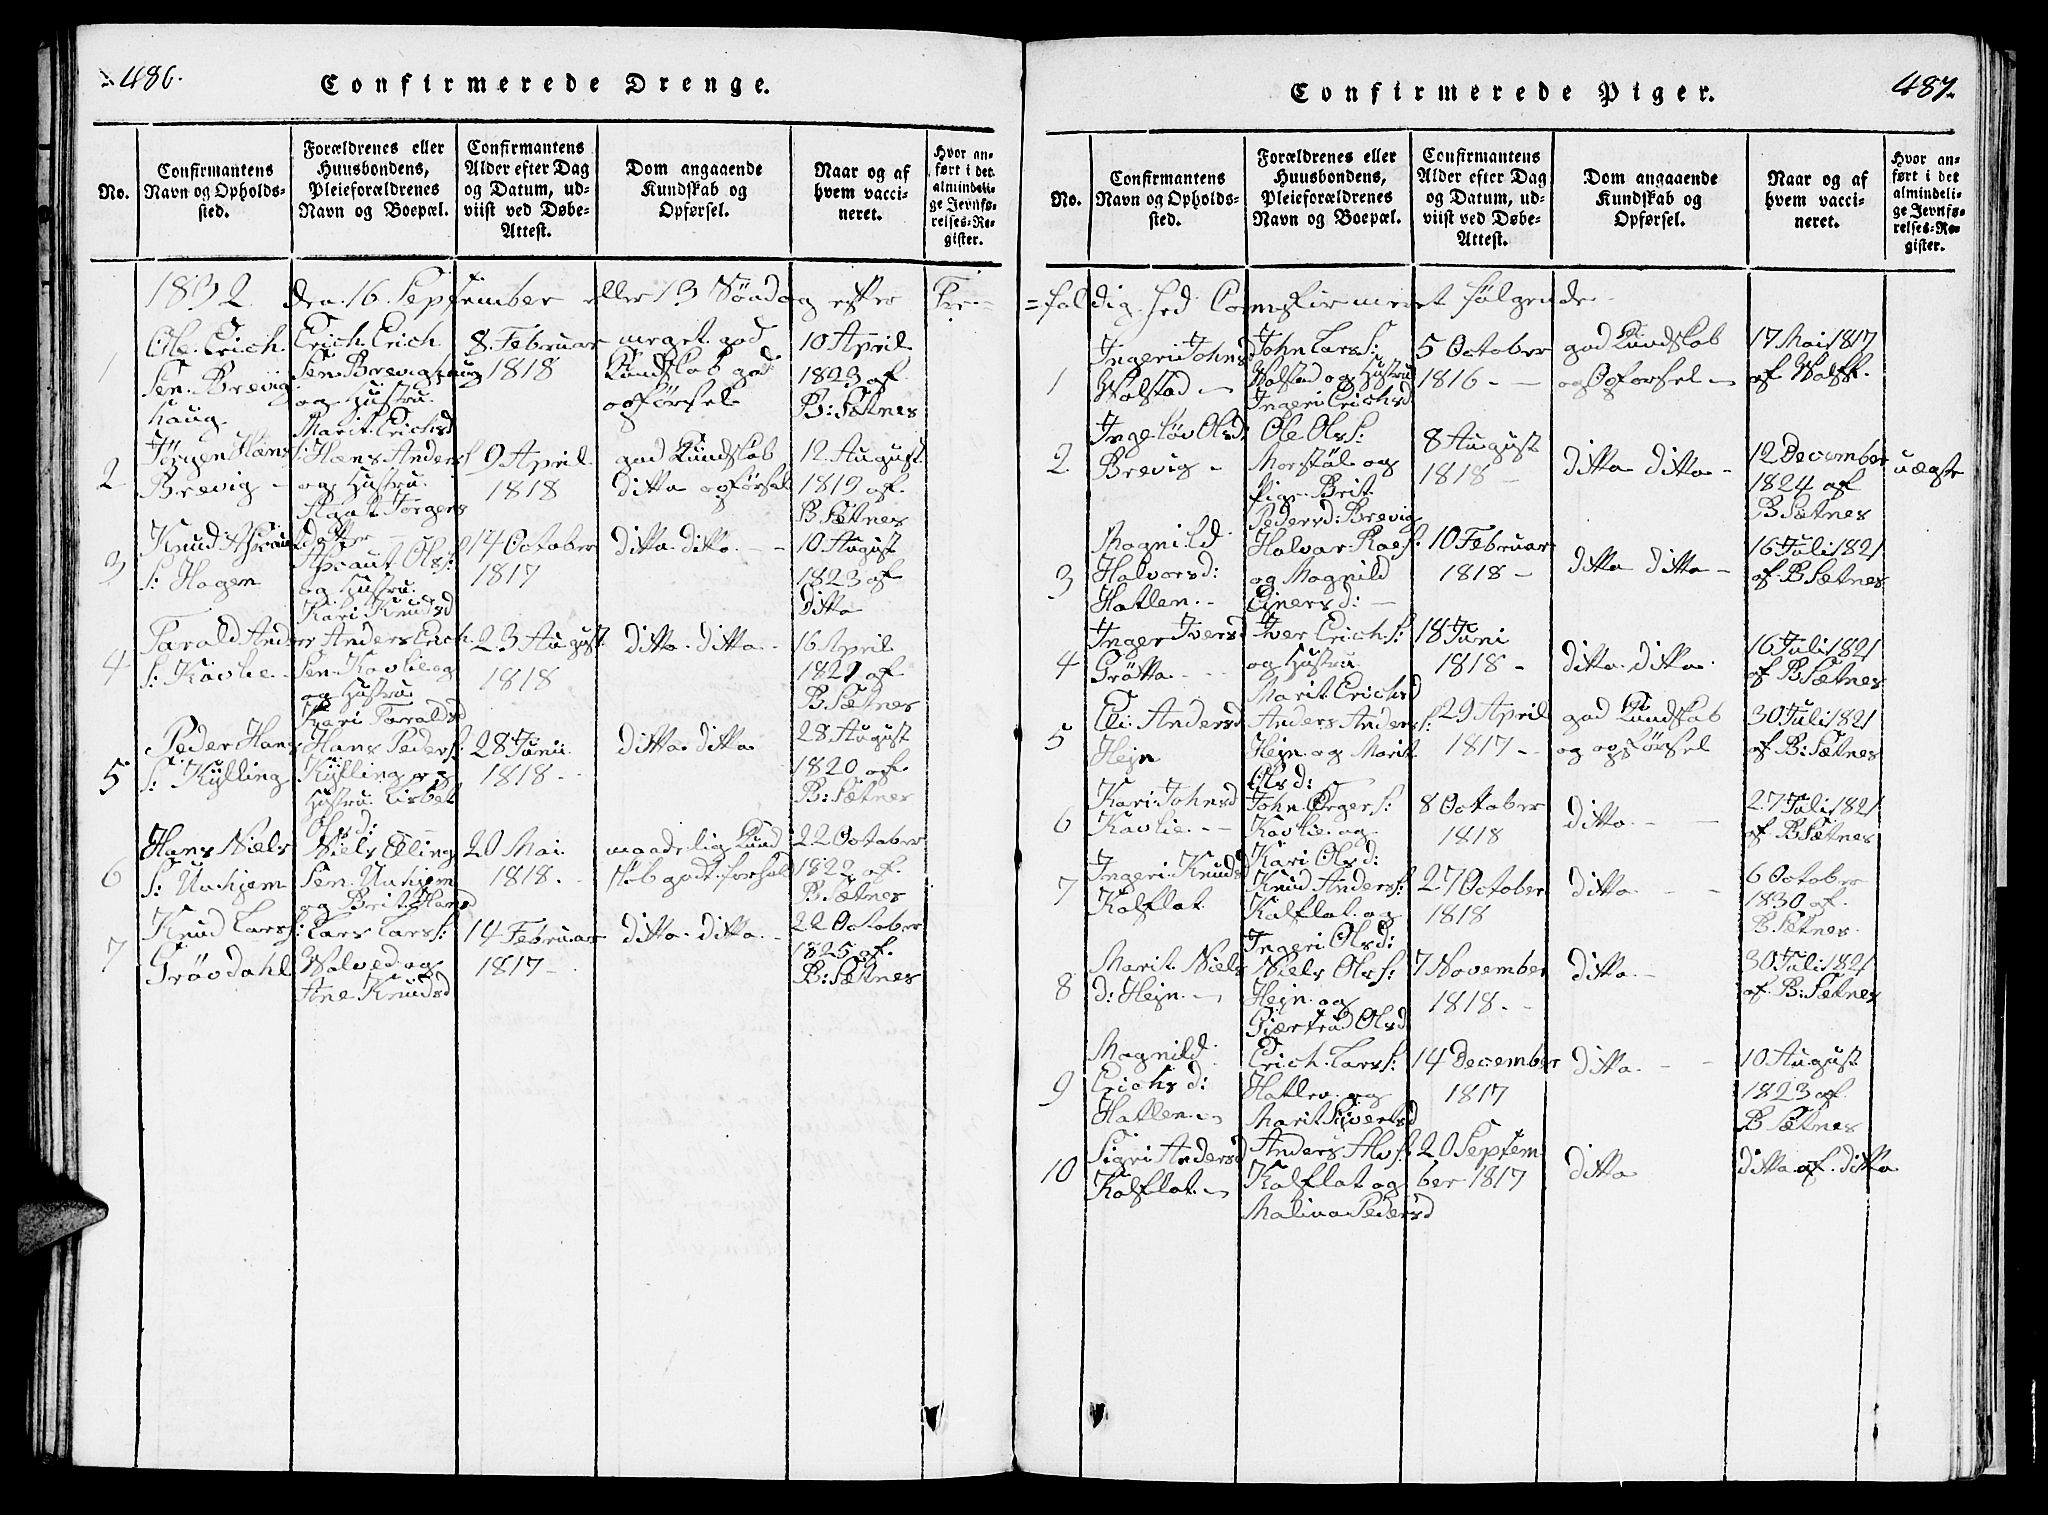 486.
Confirmerede Drenge.
No.
Confirmantens
Navn og Opholds-
sted.
Forældrenes eller
Huusbondens,
Pleieforældrenes
Navn og Boepæl.
Confirmantens
Alder efter Dag
og Datum, ud-
viist ved Døbe-
Attest.
Dom angaaende
Kundskab og
Opførsel.
Naar og af
hvem vacci-
neret.
Hvor an-
ført i det
almindeli-
ge Jevnfø-
relses-Re-
gister.
1832 den 16 September eller 13 Söndag efter Tre-
1
Ole Erich
Sen Brevig
haug
Erich Erich
Sen Brevighaug
og Hustru
Marit Erichsd
8 Februar
1818
meget god
Kundskab god
opförsel
10 April
1823 af
B: Sætnes
2
Jörgen Hans
Brevig -
S: Hans Anders
og Hustru
Jörgens
datter
9 April
1818
god Kundskab
ditta opförsel
12 August
1819 af
B Sætnes
3
Knud
S: Hagen
Olss:
og Hustru
Kari Knudsd
14 October
1817
ditta ditto - -
10 August
1823 af
ditto
4
Tarald Anders
S: Kavlie -
Anders Erich
Sen Kavlie og
og Hustru
Kari Taraldsd
23 August
1818
ditta ditta -
16 April
1821 af
B. Sætnes
5
Peder Hans
S: Kÿlling
Hans Peders:
Kÿlling og
Hustru Lisbet
Olsd:
28 Junii
1818 -
ditta ditta
28 August
1820 af
B: Sætnes
6
Hans Niels
S: Unhjem
Niels Elling
Sen Unhjem
og Brit Hansd
20 Mai
1818 -
maadelig Kund
skab god forsel
22 October
1822 af
B. Sætnes
7
Knud Larss:
Grövdahl
Lars Larss:
Wolved og
Ane Knudsd
14 Februar
1817 -
ditta ditta -
22 October
1825 af
B: Sætnes
487.
Confirmerede Piger.
No.
Confirmantens
Navn og Opholds-
sted.
Forældrenes eller
Huusbondens,
Pleieforældrenes
Navn og Boepæl.
Confirmantens
Alder efter Dag
og Datum, ud-
viist ved Døbe-
Attest.
Dom angaaende
Kundskab og
Opførsel.
Naar og af
hvem vacci-
neret.
Hvor an-
ført i det
almindeli-
ge Jevnfø-
relses-Re-
gister.
=foldig hed Confirmeret fölgende
1
Ingeri Johnsd
Wolstad -
John Larss:
Wolstad og Hustru
Ingeri Erichsd
5 October
1816 - -
god Kundskab
og Opforsel -
17 Mai 1817
af Wolff.
2
Ingelöv Olsd:
Brevig -
Ole Olss:
Morstöl og
Pige Brit
Pedersd: Brevig
8 August
1818 -
ditta ditta -
12 December
1824 af
B Sætnes
uægte
3
Magnild
Halvorsd:
Hatlen -
Halvar
og Magnild
Einersd: -
10 Februar
1818 -
ditta ditta -
16 Juli 1821
af B Sætnes
4
Inger Iversd
Grötta - -
Iver Erichs:
og Hustru
Marit Erichsd
18 Juni
1818 -
ditta ditta.
16 Juli 1821
af B Sætnes
5
Eli Andersd
Hejn
Anders Anders:
Hejn og Marit
Olsd:
29 April
1817 -
god Kundskab
og opförsel
30 Juli 1821
af B: Sætnes
6
Kari Johnsd
Kavlie - -
John
Kavlie og
Kari Olsd:
8 October
1818
ditta - -
27 Juli 1821
af B Sætnes
7
Ingeri Knudsd
Kalflat
Knud Anders:
Kalflat og
Ingeri Olsd:
27 October
1818
ditta - -
6 October
1830 af
B Sætnes.
8
Marit Niels
d: Hejn -
Niels Olss:
Hejn og
Gjærtrud Olsd
7 November
1818 - -
ditta -
30 Juli 1821
af B: Sætnes
9
Magnild
Erichsd:
Hatlen -
Erich Larss:
Hatlen og
Marit Sivertsd
14 December
1817
ditta - -
10 August
1823 af
B Sætnes
10
Sigri Andersd
Kalflat -
Anders
Kalflat og
Malina Pedersd
20 Septem
ber 1817
ditta
ditta af ditta